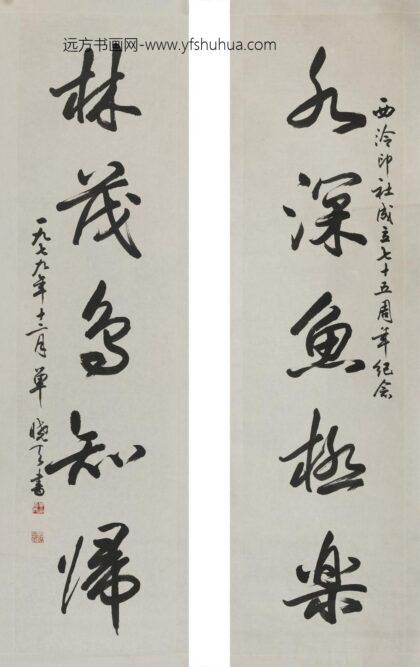 远方书画网-www.yfshuhua.com
西泠印社成立七十五周年纪念
水深魚極楽
林茂鸟知帰
一九七九年十二月單晓天書